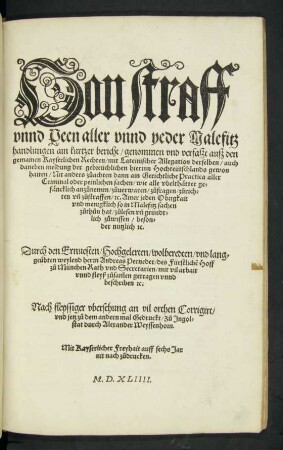 Von straff
vnnd Peen aller vnnd yeder Malefitz
handlungen ain kurtzer bericht / genommen vnd verfaßt auß den
gemainen Kayserlichen Rechten / mit Lateinischer Allegation derselben / auch
daneben meldung der gebreüchlichen hierinn Hochteütschlands gewon
haiten / Mit anders züachten dann ain Gerichtliche Practica aller
Criminal oder peinlichen sachen / wie alle übelthätter ge-
fäncklich anzünemen / züuerwaren / züfragen / zürich-
ten vñ züstraffen / ꝛc. Ainer jeden Obrigkait
vnd mengklich so in Malefitz sachen
züthün hat / zülesen vñ gründt-
lich züwissen / beson-
der nutzlich ꝛc.
Durch den Ernuesten / Hochgelerten / wolberedten / vnd lang-
geübten weylend herrn Andreas Perneder / des Fürstlichē Hoff
zü München Rath vnd Secretarien / mit vil arbait
vnd fleyß züsamen getragen vnnd
beschriben ꝛc.
Nach fleyssiger vbersehung an vil orthen Corrigirt /
vnd jetz zü dem andern mal Gedruckt / Zü Ingol-
stat durch Alexander Weyssenhorn.
Mit Kayserlicher Freyhait auff sechs Jar
nit nach zudrucken.
M. D. XLIIII.